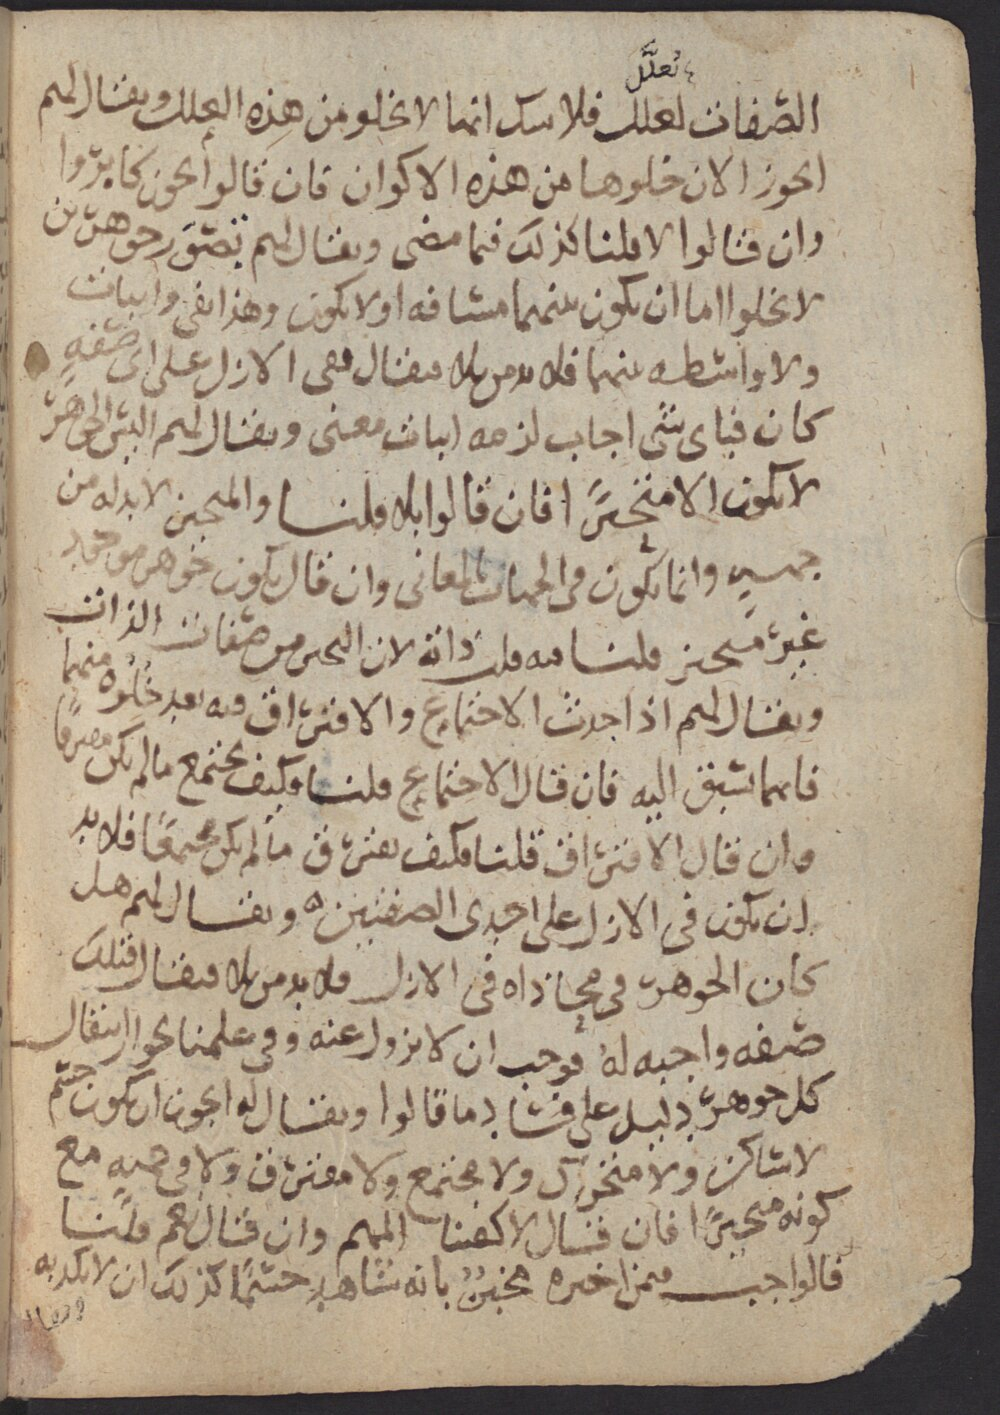 تعلل
الصفات لعلل فلا شك انها لا تخلو من هذه العلل ويقال لهم
ايجوز الان خلوها من هذه الاكوان فان قالوا يجوز كابروا
وان قالوا لا قلنا كذلك فيما مضى ويقال لهم تصور جوهرين
لا يخلوا اما ان يكون بينهما مسافه او لا يكون وهذا نفى واثبات
ولا واسطه بينهما فلا بد من بلا فيقال ففى الازل على اى صفةٍ
كان فباى شى اجاب لزمه اثبات معنى ويقال لهم اليس الجوهر
لا يكون الا متحيزًا فان قالوا بلا قلنا والمتحيز لا بد له من
جهــةٍ وانما يكون فى الجهات لمعانى وان قال يكون جوهر موجود
غير متحيز قلنا فيه قلب ذاته لان التحيز من صفات الذات
ويقال لهم اذا حدث الاجتماع والافتراق فيه بعد خُلُوه منهما
فايهما سبق اليه فان قال الاجتماع قلنا وكيف يجتمع ما لم يكن مفترقًا
وان قال الافتراق قلنا وكيف يفترق ما لم يكن مجتمعًا فلا بد
ان يكون فى الازل على احدى الصفتين ويقال لهم هل
كان الجوهر فى محاذاه فى الازل فلا بد من بلا فيقال افتلك
صفه واجبه له فوجب ان لا يزول عنه وفى علمنا بجواز انتقال
كل جوهر دليل على فساد ما قالوا ويقال له ايجوز ان يكون جسم
لا ساكن ولا متحرك ولا مجتمع ولا مفترق ولا فى جهةٍ مع
كونه متحيزًا فان قال لا كفينا المهم وان قال نعم قلنا
فالواجب فيمن اخبره مخبرٌ بانه شاهد جسمًا كذلك ان لا يكذبه